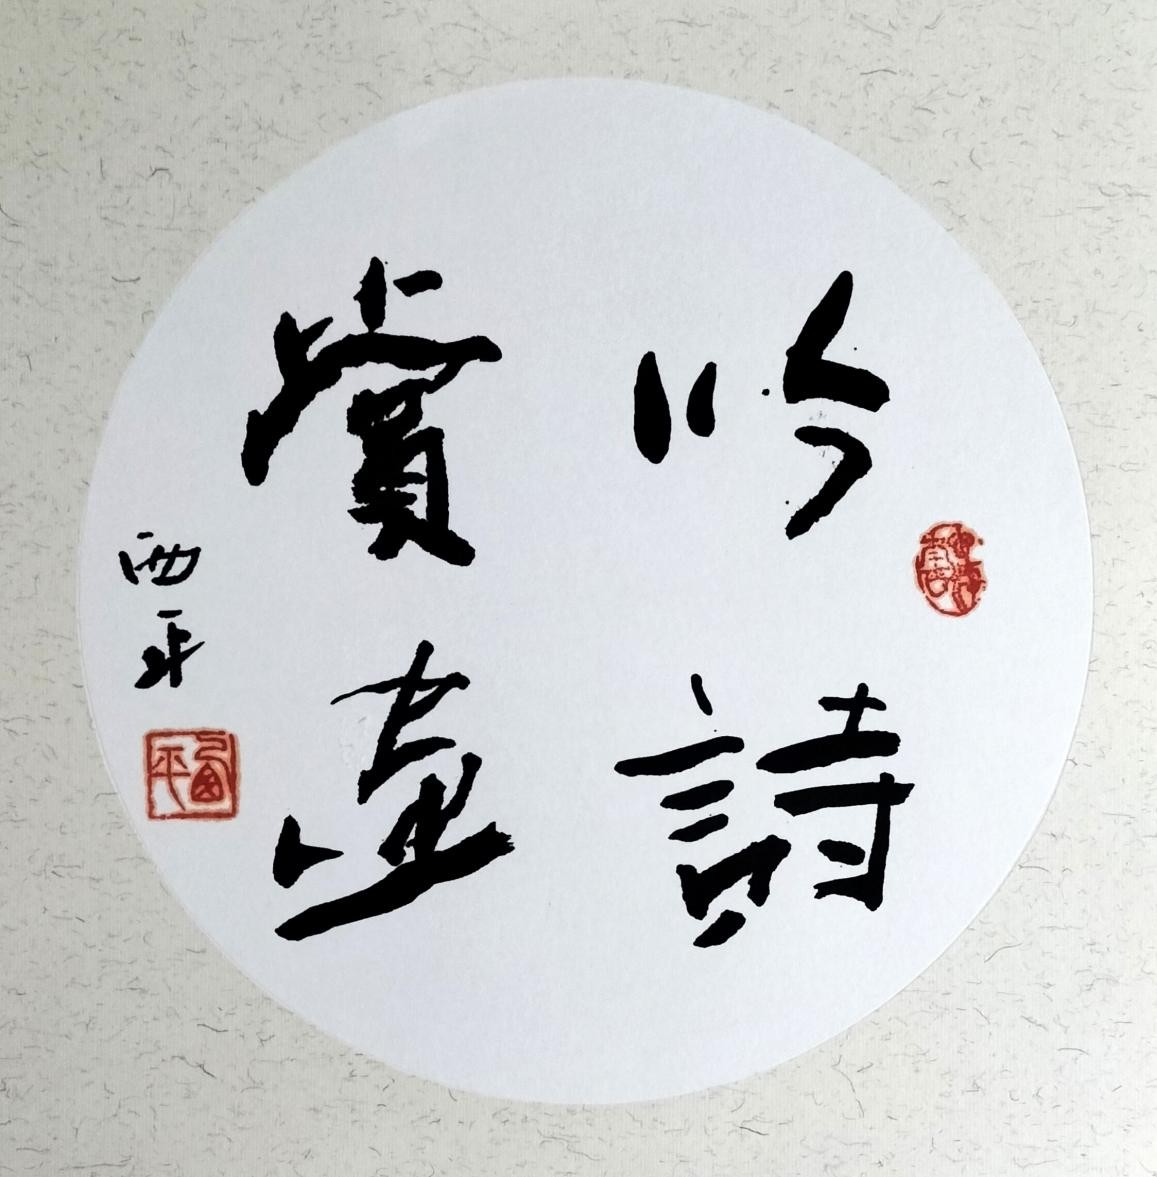 吟詩
賞畫
西平